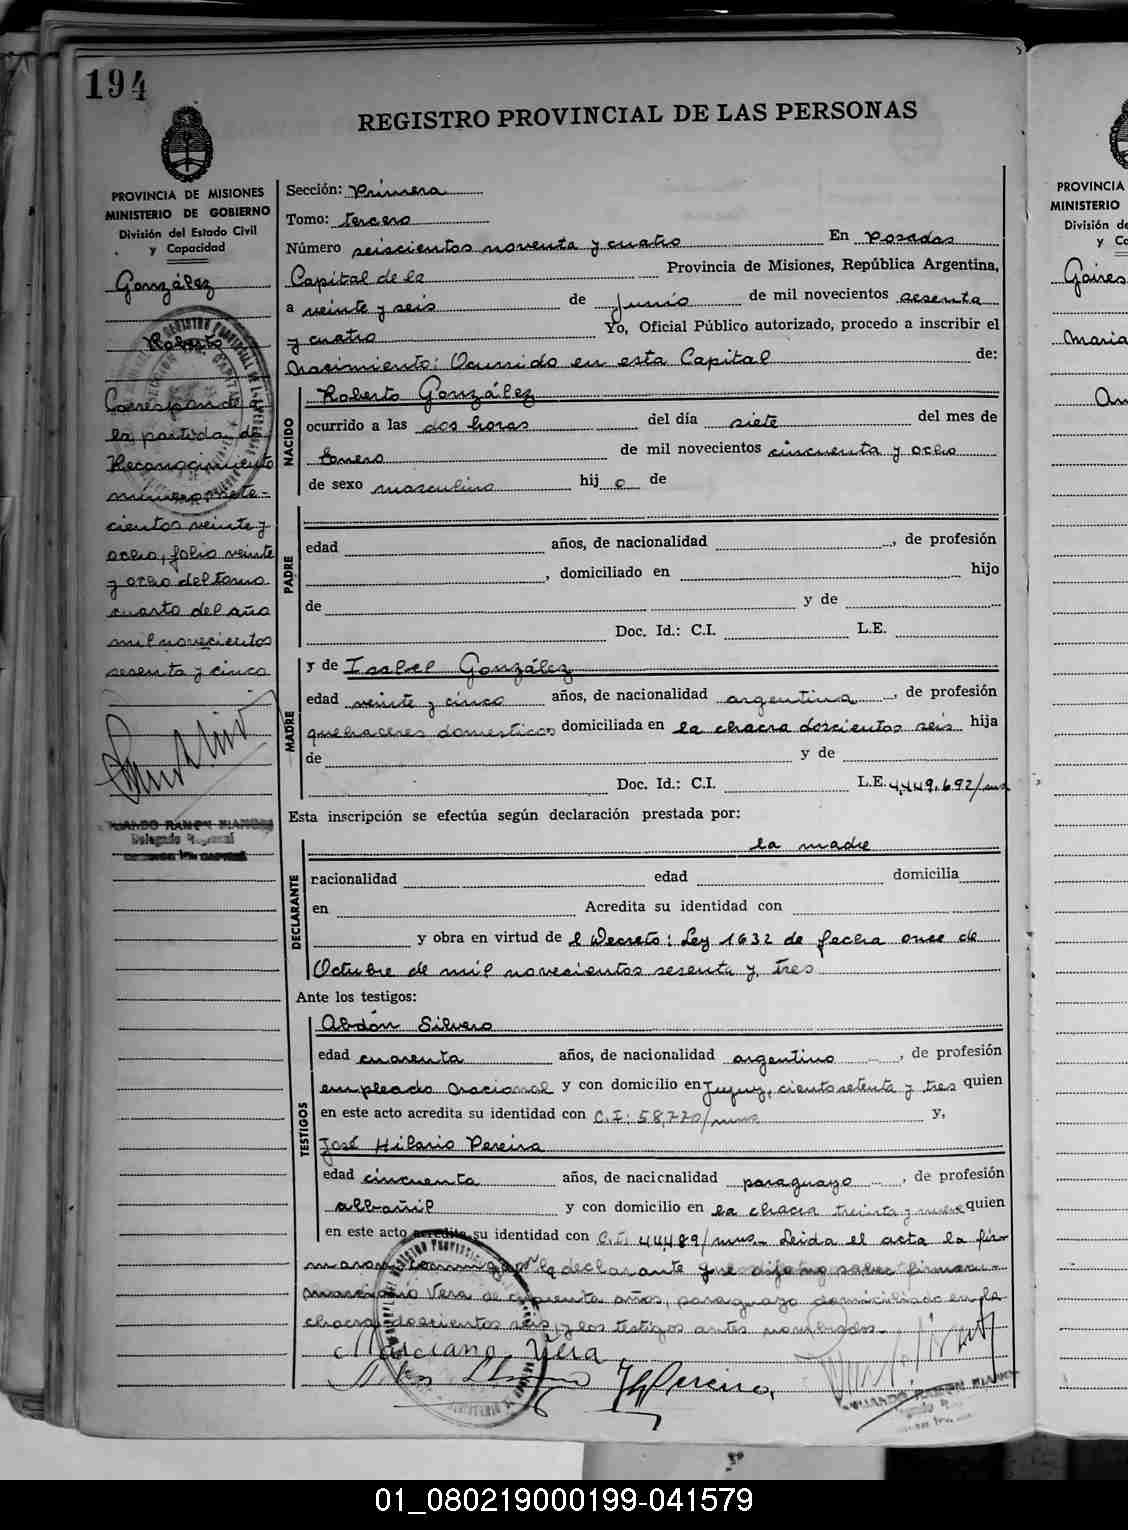 194
REGISTRO PROVINCIAL DE LAS PERSONAS
PROVINCIA DE MISIONES
MINISTERIO DE GOBIERNO
División del Estado Civil
y Capacidad
González
Roberto
Corresponde a
la partida de
Reconocimiento
número sete-
cientos veinte y
ocho, folio veinte
y ocho del tomo
cuarto del año
mil novecientos
sesenta y cinco
Delegado Regional
Sección: Primera
Tomo: tercero
Número seiscientos noventa y cuatro En Posadas
Capital de la Provincia de Misiones, República Argentina,
a veinte y seis de Junio de mil novecientos sesenta
y cuatro Yo, Oficial Público autorizado, procedo a inscribir el
Nacimiento: Ocurrido en esta Capital de:
NACIDO
Roberto González
ocurrido a las dos horas del día siete del mes de
Enero de mil novecientos cincuenta y ocho
de sexo masculino hij o de
PADRE
edad años, de nacionalidad , de profesión
, domiciliado en hijo
de y de
Doc. Id.: C.I. L.E.
MADRE
y de Isabel González
edad veinte y cinco años, de nacionalidad argentina , de profesión
quehaceres domesticos domiciliada en la chacra doscientos seis hija
de y de
Doc. Id.: C.I. L.E. 4,449,692/mns
Esta inscripción se efectúa según declaración prestada por:
DECLARANTE
la madre
nacionalidad edad domicilia
en Acredita su identidad con
y obra en virtud de l Decreto: Ley 1632 de fecha once de
Octubre de mil novecientos sesenta y tres
Ante los testigos:
TESTIGOS
Abdón Silvero
edad cuarenta años, de nacionalidad argentino , de profesión
empleado nacional y con domicilio en Jujuy, ciento setenta y tres quien
en este acto acredita su identidad con C.I: 58,770/mns y,
José Hilario Pereira
edad cincuenta años, de nacicnalidad paraguayo , de profesión
albañil y con domicilio en la chacra treinta y nueve quien
en este acto acredita su identidad con C.I. 44,489/mns- Leida el acta la fir-
maron conmigo por la declarante que dijo no saber firmar
Marciano Vera de cincuenta años, paraguayo domiciliado en la
chacra doscientos seis, y los testigos antes nombrados.
Marciano Vera
JHPereira
PROVINCIA
MINISTERIO
División de
y Ca
Maria
01_080219000199-041579